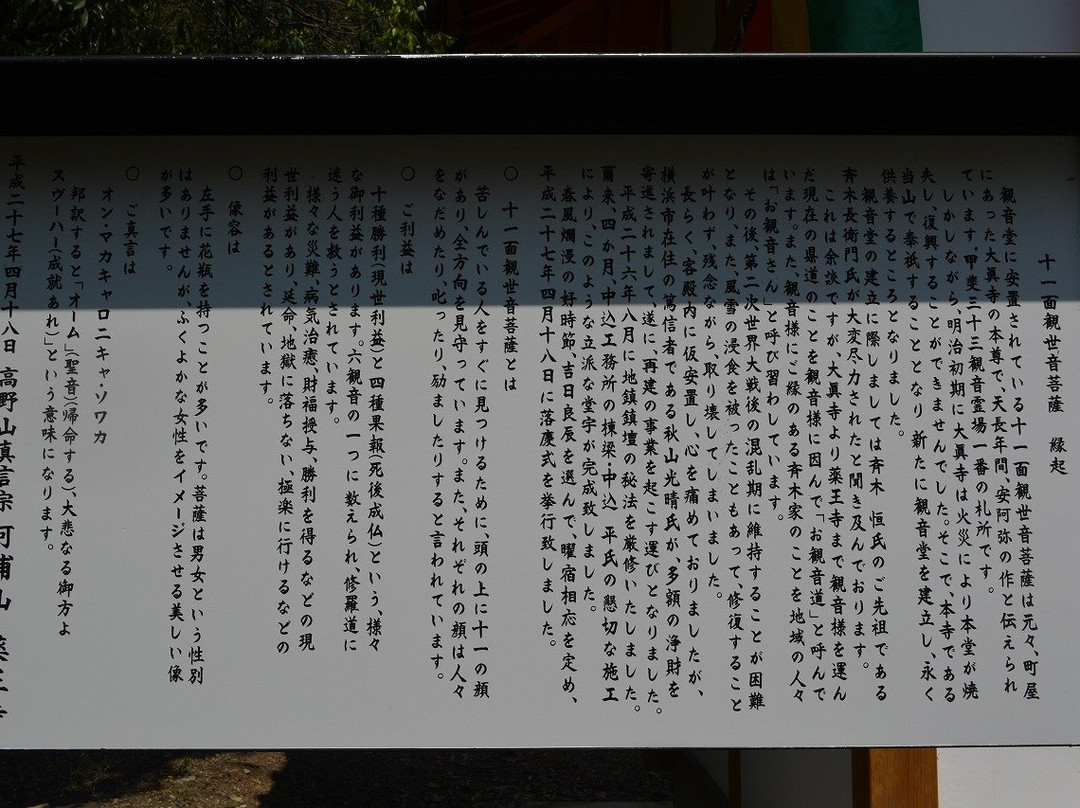 十一面観世音菩薩　縁起
観音堂に安置されている十一面観世音菩薩は元々、町屋
にあった大眞寺の本尊で、天長年間、安阿弥の作と伝えられ
ています。甲斐三十三観音霊場一番の札所です。
しかしながら、明治初期に大眞寺は火災により本堂が焼
失し、復興することができませんでした。そこで、本寺である
当山で奉祇することとなり、新たに観音堂を建立し、永く
供養するところとなりました。
観音堂の建立に際しましては斉木　恒氏のご先祖である
斉木長衛門氏が大変尽力されたと聞き及んでおります。
これは余談ですが、大眞寺より薬王寺まで観音様を運ん
だ現在の県道のことを観音様に因んで「お観音道」と呼んで
います。また、観音様にご縁のある斉木家のことを地域の人々
は「お観音さん」と呼び習わしています。
その後、第二次世界大戦後の混乱期に維持することが困難
となり、また、風雪の浸食を被ったこともあって、修復すること
が叶わず、残念ながら、取り壊してしまいました。
長らく、客殿内に仮安置し、心を痛めておりましたが、
横浜市在住の篤信者である秋山光晴氏が、多額の浄財を
寄進されまして、遂に、再建の事業を起こす運びとなりました。
平成二十六年八月に地鎮鎮壇の秘法を厳修いたしました。
爾来、四か月、中込工務所の棟梁・中込　平氏の懇切な施工
により、このような立派な堂宇が完成致しました。
春風爛漫の好時節、吉日良辰を選んで、曜宿相応を定め、
平成二十七年四月十八日に落慶式を挙行致しました。
〇　十一面観世音菩薩とは
苦しんでいる人をすぐに見つけるために、頭の上に十一の顔
があり、全方向を見守っています。また、それぞれの顔は人々
をなだめたり、叱ったり、励ましたりすると言われています。
〇　ご利益は
十種勝利（現世利益）と四種果報（死後成仏）という、様々
な御利益があります。六観音の一つに数えられ、修羅道に
迷う人を救うとされています。
様々な災難、病気治癒、財福授与、勝利を得るなどの現
世利益があり、延命、地獄に落ちない、極楽に行けるなどの
利益があるとされています。
〇　像容は
左手に花瓶を持つことが多いです。菩薩は男女という性別
はありませんが、ふくよかな女性をイメージさせる美しい像
が多いです。
〇　ご真言は
オン・マカキャロニキャ・ソワカ
邦訳すると「オーム」（聖音）（帰命する）、大悲なる御方よ
スヴーハー（成就あれ）」という意味になります。
平成二十七年四月十八日　高野山眞言宗　河浦山　薬王寺